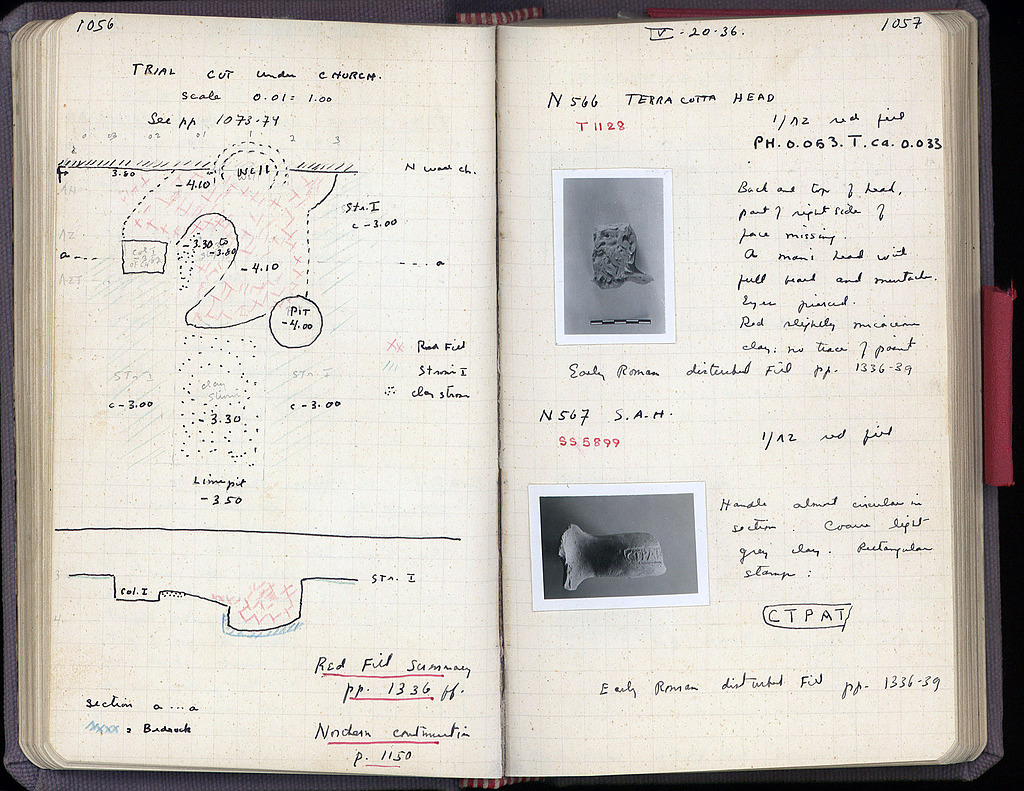 1056
TRIAL CUT under CHURCH.
Scale 0.01 = 1.00
See pp 1073-74
0 03 02 01 1 2 3
3.80
-4.10
Well
N wall ch.
AH
Str. I
c -3.00
AZ
a
-3.30 to
-3.80
-4.10
a
PIT
-4.00
xx Red Fill
/// Stroses I
Str. I
clay
Str. I
c -3.00
-3.30
c -3.00
Lime pit
-3.50
3
Str. I
Col. I
4
Red Fill Summary
pp. 1336 ff.
section a...a
xxxx = Bedrock
Northern continuation
p. 1150
1057
V-20-36.
N 566 TERRACOTTA HEAD
T 1128
1/ΛΖ red fill
PH. 0.063. T. ca. 0.033
Back and top of head,
part of right side of
face missing.
A man's head with
full beard and mustache.
Eyes pierced.
Red slightly micaceous
clay: no trace of paint
Early Roman disturbed Fill pp. 1336-39
N 567 S.A.H.
SS 5899
1/ΛΖ red fill
Handle almost circular in
section. Coarse light
grey clay. Rectangular
stamp:
CTPAT
Early Roman disturbed Fill pp. 1336-39